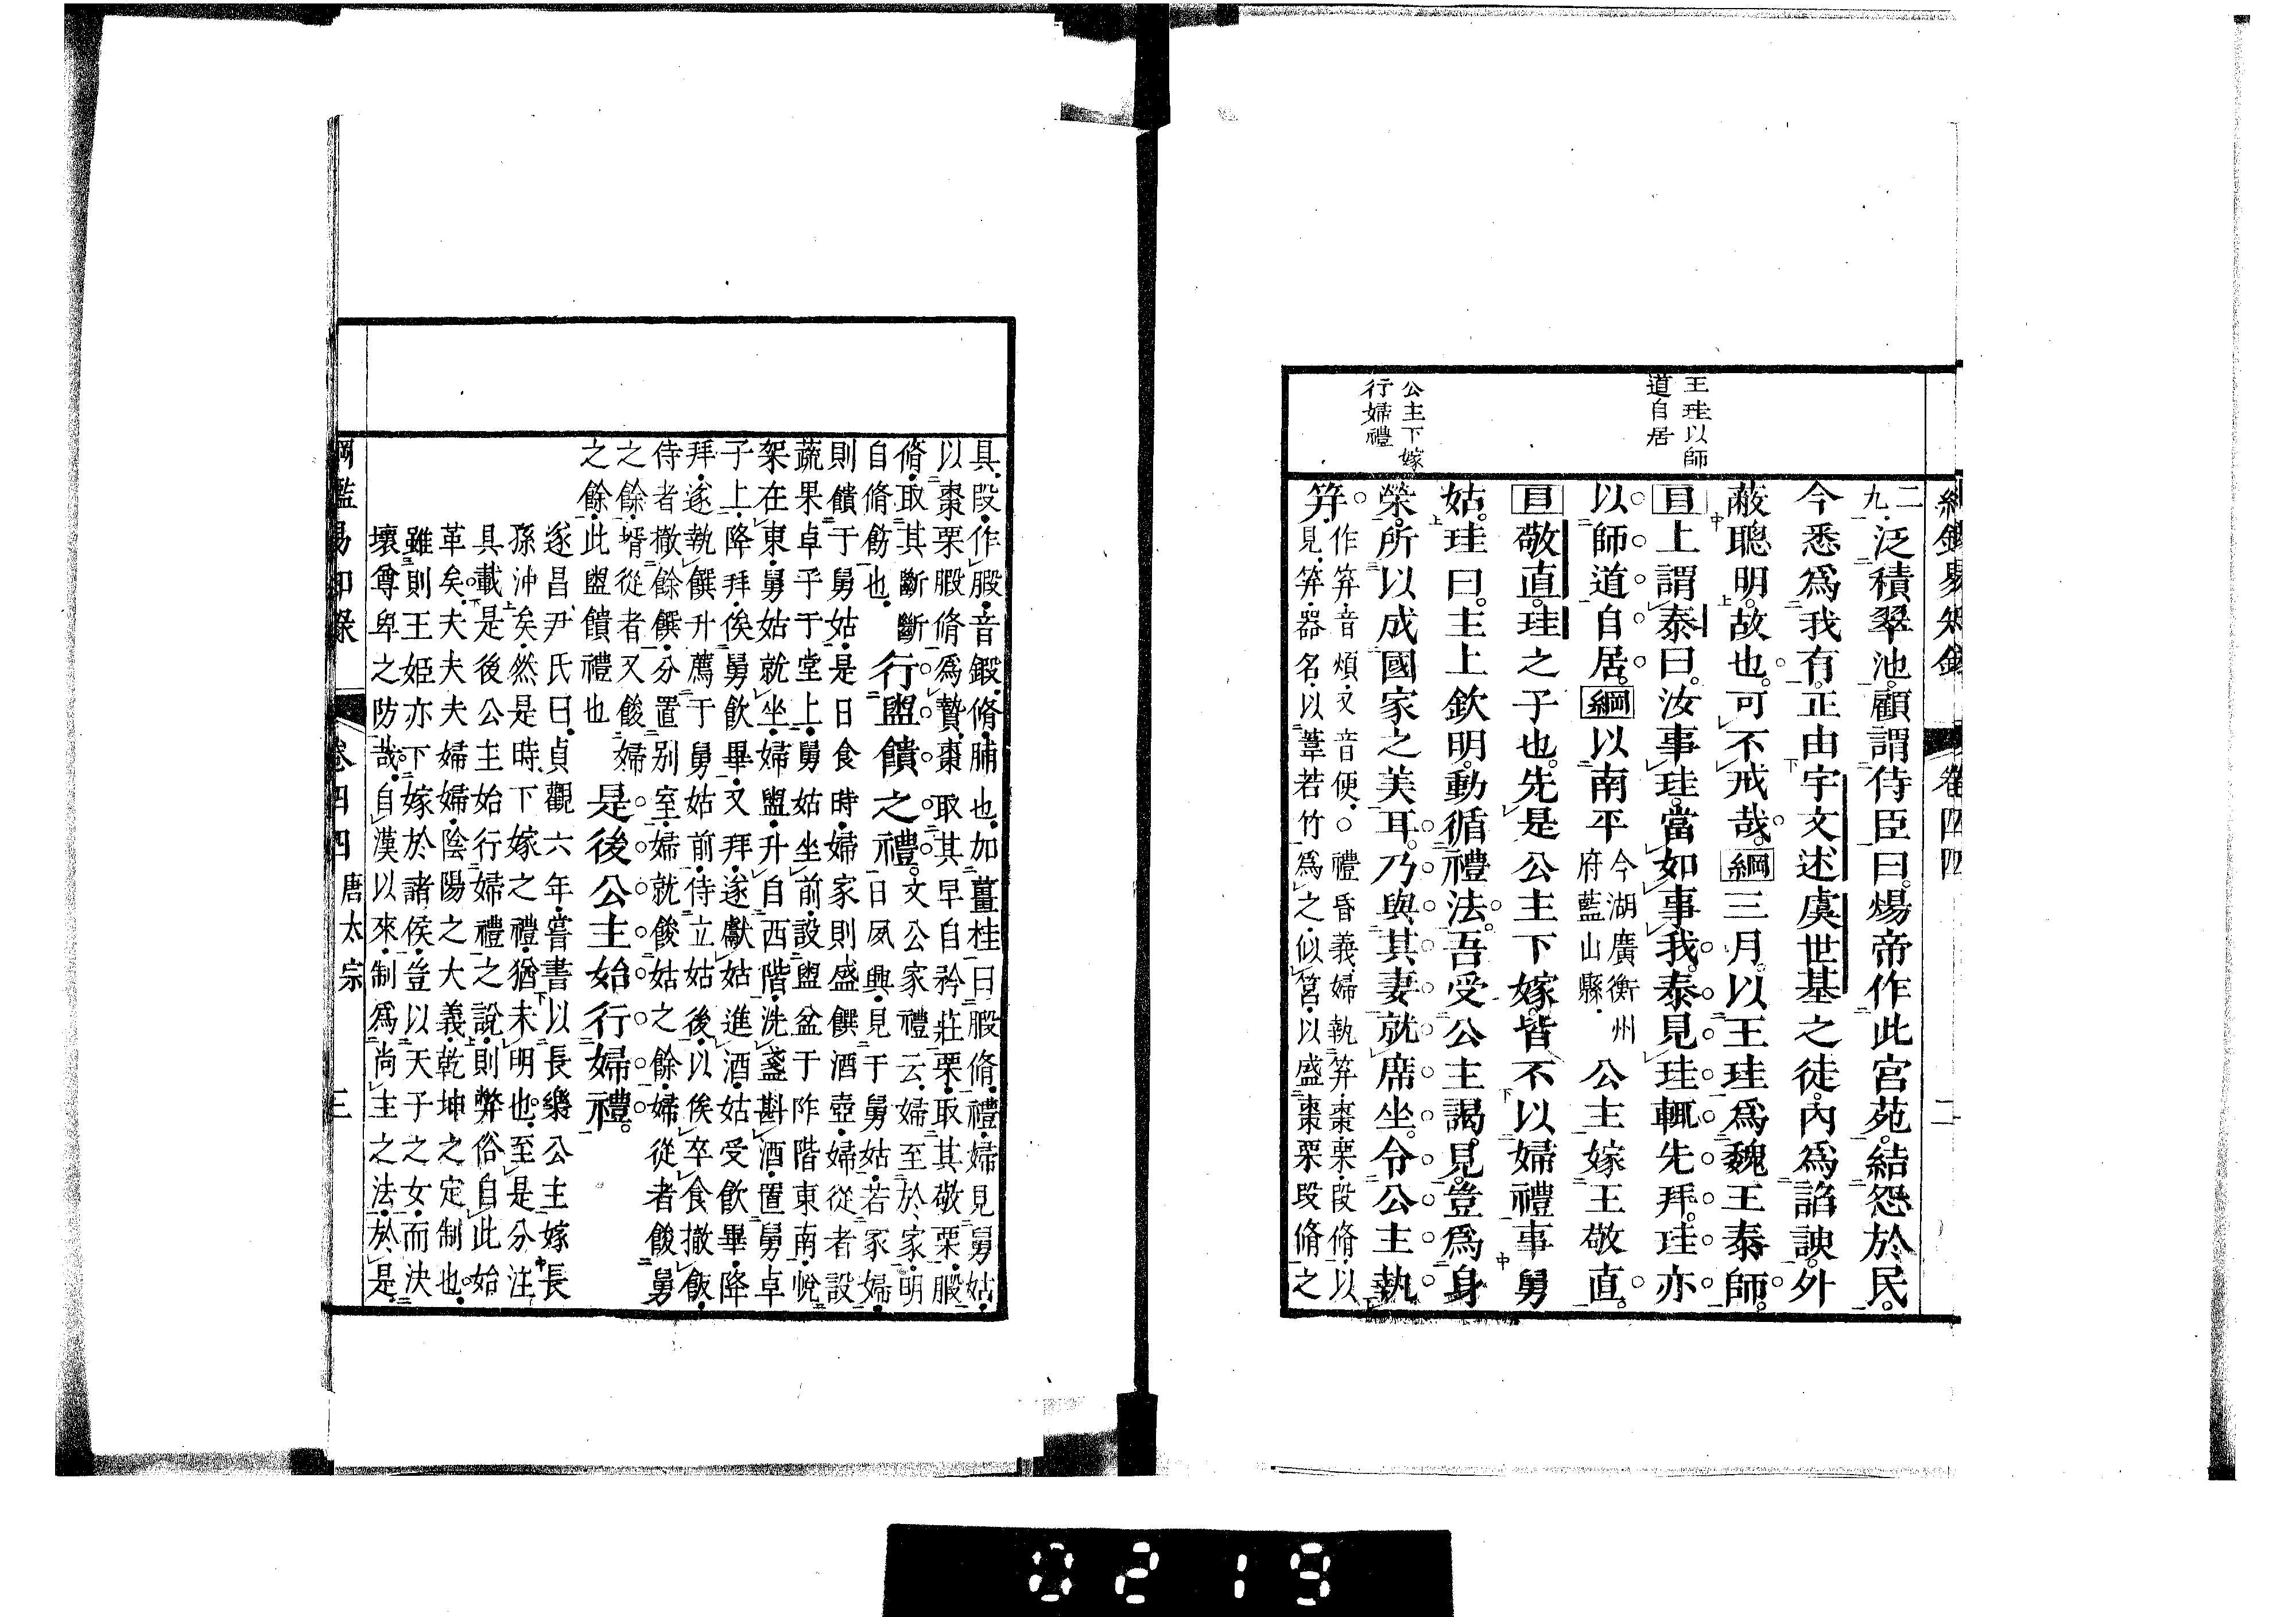 綱鑑易知錄
卷四四
二
王珪以師
道自居
公主下嫁
行婦禮
二九泛積翠池顧謂侍臣曰煬帝作此宮苑結怨於民
今悉爲我有正由宇文述虞世基之徒內爲諂諛外
蔽聰明故也可不戒哉綱三月以王珪爲魏王泰師
目上謂泰曰汝事珪當如事我泰見珪輒先拜珪亦
以師道自居綱以南平今湖廣衡州府藍山縣公主嫁王敬直
目敬直珪之子也先是公主下嫁皆不以婦禮事舅
姑珪曰主上欽明動循禮法吾受公主謁見豈爲身
榮所以成國家之美耳乃與其妻就席坐令公主執
笲作笲音煩又音便○禮昏義婦執笲棗栗段脩以
見笲器名以葦若竹爲之似筥以盛棗栗段脩之
具段作腶音鍛脩脯也加薑桂曰腶脩禮婦見舅姑
以棗栗腶脩爲贄棗取其早自矜莊栗取其敬栗腶
脩取其斷斷自脩飭也行盥饋之禮文公家禮云婦至於家明
日夙興見于舅姑若冢婦
則饋于舅姑是日食時婦家則盛饌酒壺婦從者設
蔬果卓子于堂上舅姑坐前設盥盆于阼階東南帨
架在東舅姑就坐婦盥升自西階洗盞斟酒置舅卓
子上降拜俟舅飲畢又拜遂獻姑進酒姑受飲畢降
拜遂執饌升薦于舅姑前侍立姑後以俟卒食撤飯
侍者撤餘饌分置别室婦就餕姑之餘婦從者餕舅
之餘壻從者又餕婦
之餘此盥饋禮也是後公主始行婦禮
遂昌尹氏曰貞觀六年嘗書以長樂公主嫁長
孫沖矣然是時下嫁之禮猶未明也至是分注
具載是後公主始行婦禮之說則弊俗自此始
革矣夫夫夫婦婦陰陽之大義乾坤之定制也
雖則王姬亦下嫁於諸侯豈以天子之女而決
壞尊卑之防哉自漢以來制爲尚主之法於是
綱鑑易知錄
卷四四
唐太宗
三
0219